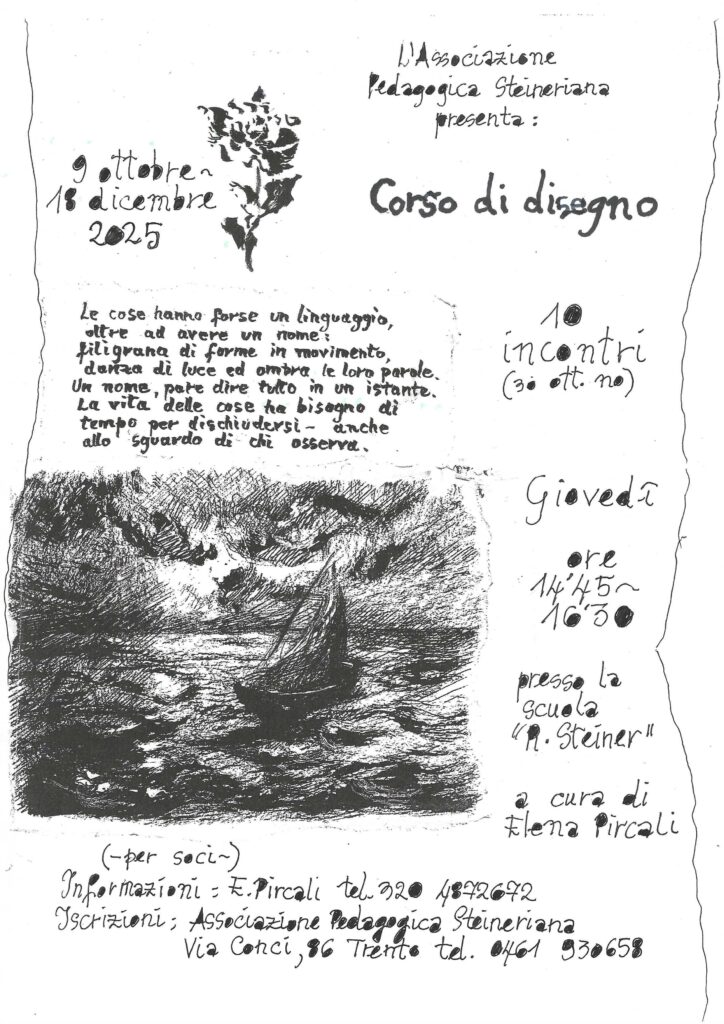 L'Associazione
Pedagogica Steineriana
presenta:
9 ottobre~
18 dicembre
2025
Corso di disegno
Le cose hanno forse un linguaggio,
oltre ad avere un nome:
filigrana di forme in movimento,
danza di luce ed ombra le loro parole.
Un nome, pare dire tutto in un istante.
La vita delle cose ha bisogno di
tempo per dischiudersi – anche
allo sguardo di chi osserva.
10
incontri
(30 ott. no)
Giovedì
ore
14'45~
16'30
presso la
scuola
"R. Steiner"
a cura di
Elena Pircali
(-per soci~)
Informazioni: E. Pircali tel. 320 4872672
Iscrizioni: Associazione Pedagogica Steineriana
Via Conci, 86 Trento tel. 0461 930658